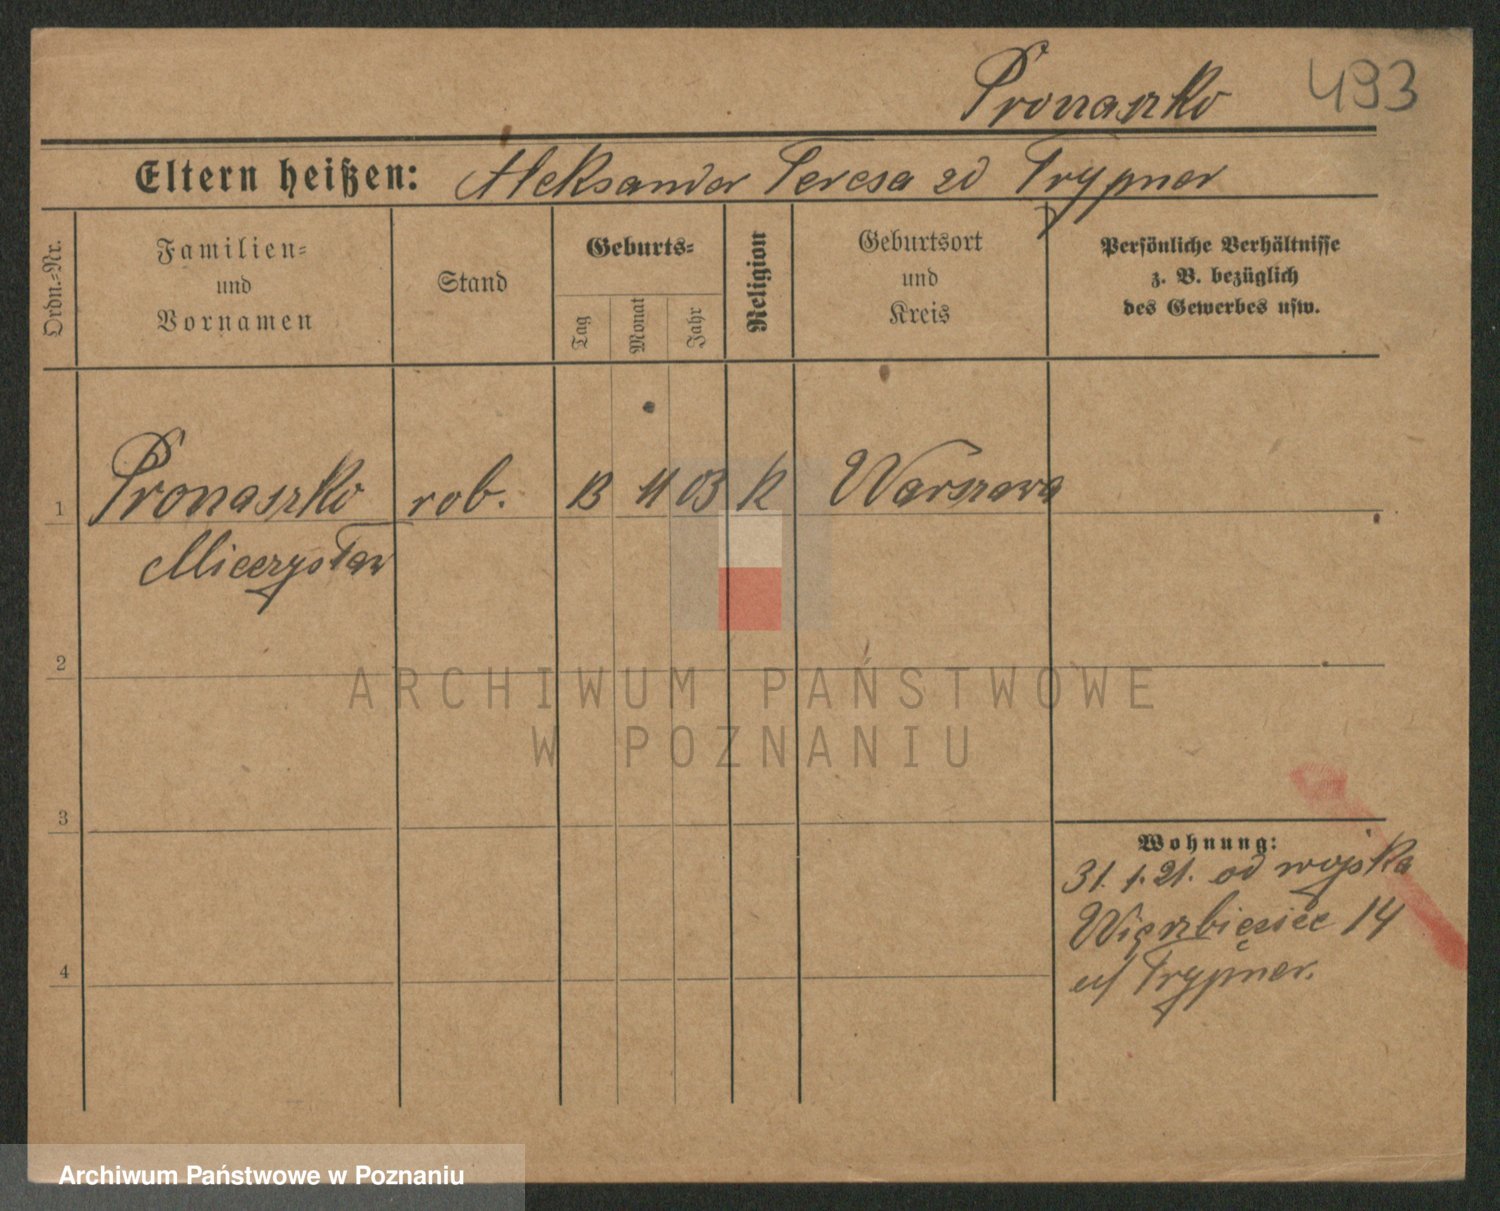 Pronaszko 493
Eltern heißen: Aleksander Teresa zd Trypner
Ordn.-Nr.
Familien-
und
Vornamen
Stand
Geburts-
Tag
Monat
Jahr
Religion
Geburtsort
und
Kreis
Persönliche Verhältnisse
z. B. bezüglich
des Gewerbes usw.
1 Pronaszko rob. 13 11 03 K Warszawa
Mieczysław
2
3
4
Wohnung:
31. 1. 21. od wojska
14
Trypner.
ARCHIWUM PAŃSTWOWE
W POZNANIU
Archiwum Państwowe w Poznaniu